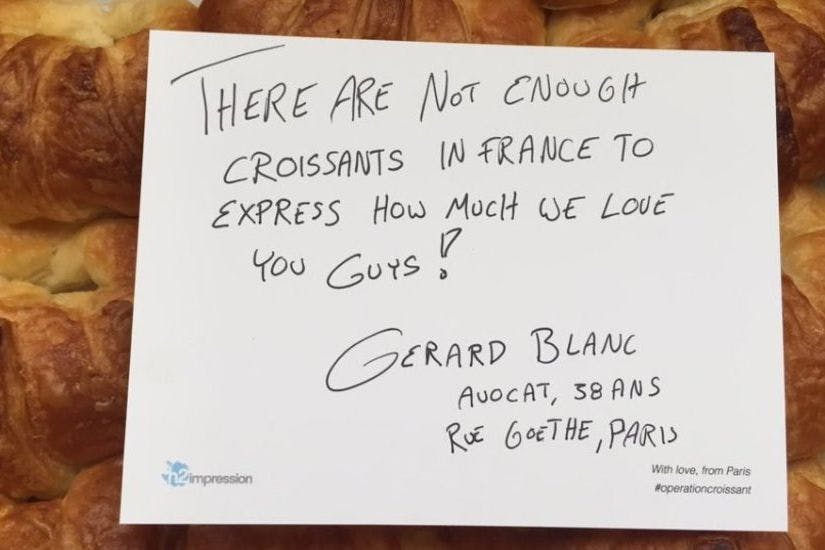 THERE ARE NOT ENOUGH
CROISSANTS IN FRANCE TO
EXPRESS HOW MUCH WE LOVE
YOU GUYS!
GERARD BLANC
AVOCAT, 38 ANS
RUE GOETHE, PARIS
h2impression
With love, from Paris
#operationcroissant